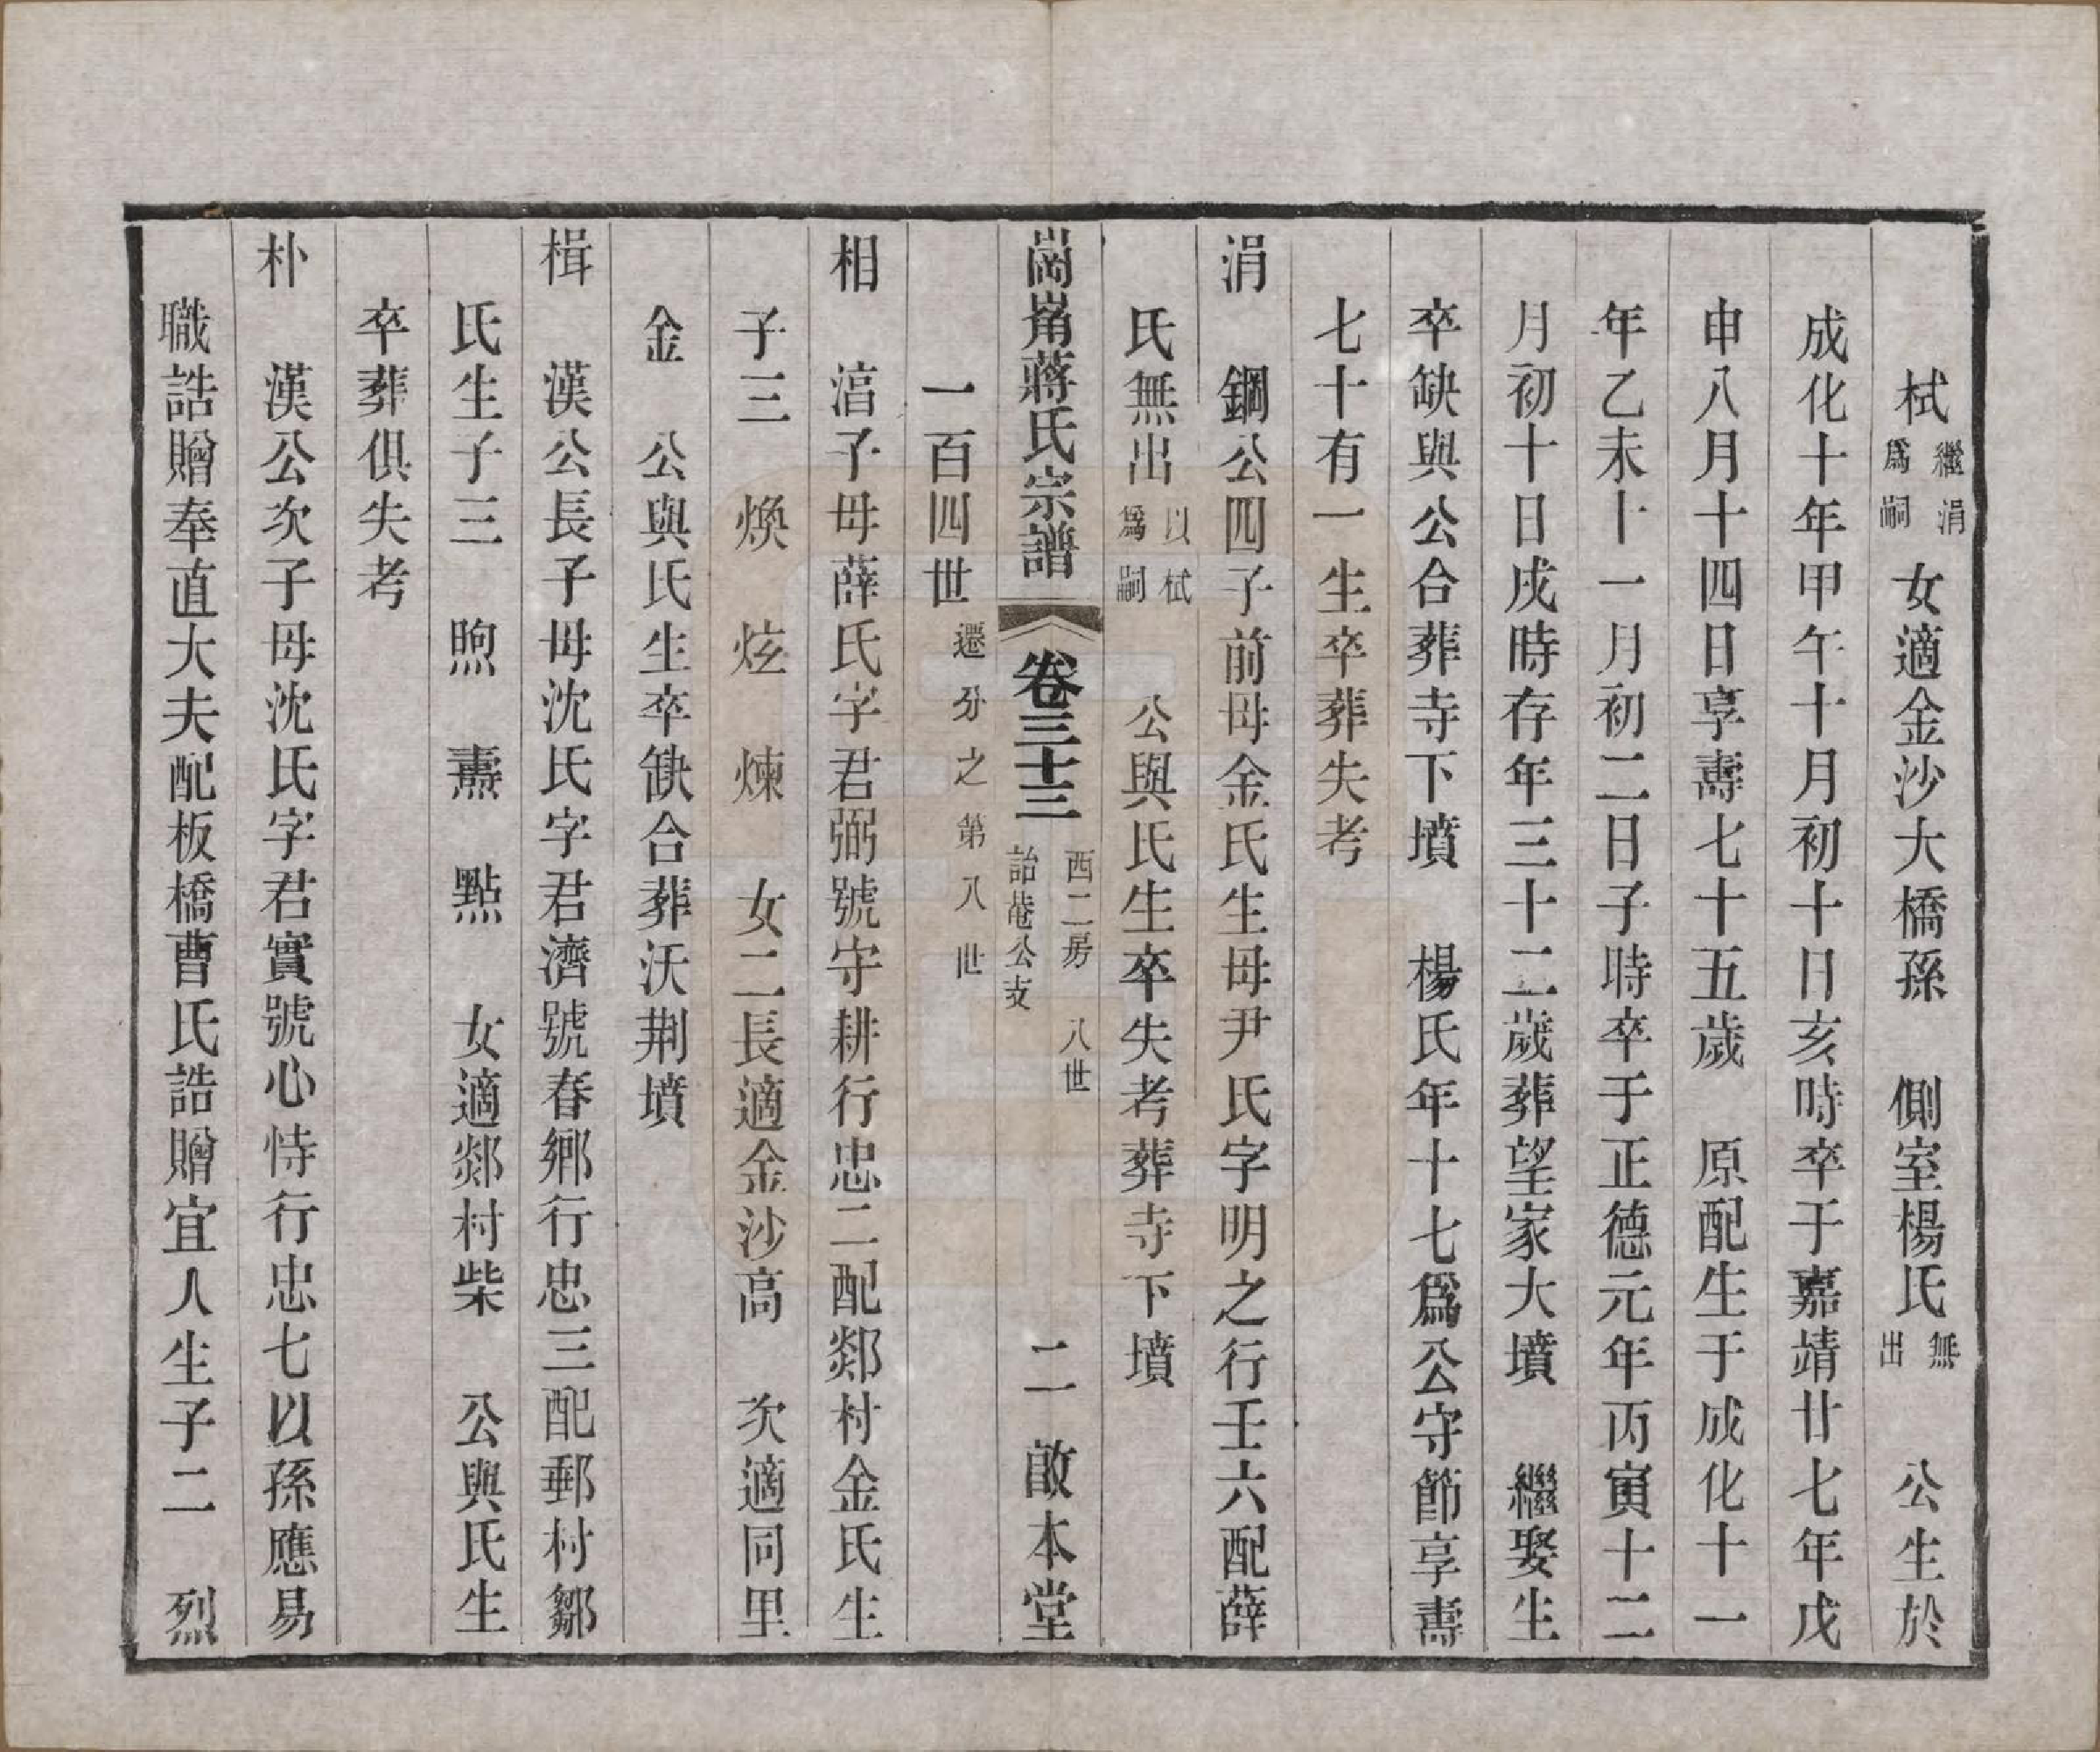 栻繼涓爲嗣　女適金沙大橋孫　側室楊氏無出　公生於
成化十年甲午十月初十日亥時卒于嘉靖廿七年戊
申八月十四日享壽七十五歲　原配生于成化十一
年乙未十一月初二日子時卒于正德元年丙寅十二
月初十日戌時存年三十二歲葬望家大墳　繼娶生
卒缺與公合葬寺下墳　楊氏年十七爲公守節享壽
七十有一生卒葬失考
涓　鋼公四子前母金氏生母尹氏字明之行壬六配薛
氏無出以栻爲嗣　公與氏生卒失考葬寺下墳
崗崩蔣氏宗譜　卷三十三　西二房詒菴公支　八世　二　啟本堂
一百四世遷分之第八世
相　湻子母薛氏字君弼號守耕行忠二配郯村金氏生
子三　煥　炫　煉　女二長適金沙高　次適同里
金　公與氏生卒缺合葬沃荆墳
楫　漢公長子母沈氏字君濟號春鄉行忠三配郵村鄒
氏生子三　煦　燾　點　女適郯村柴　公與氏生
卒葬俱失考
朴　漢公次子母沈氏字君實號心恃行忠七以孫應易
職誥贈奉直大夫配板橋曹氏誥贈宜人生子二　烈